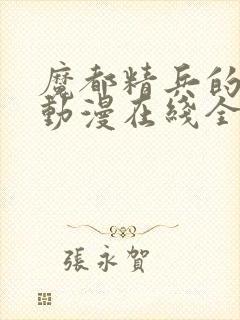 魔都精兵的
動漫在綫全
張永賀